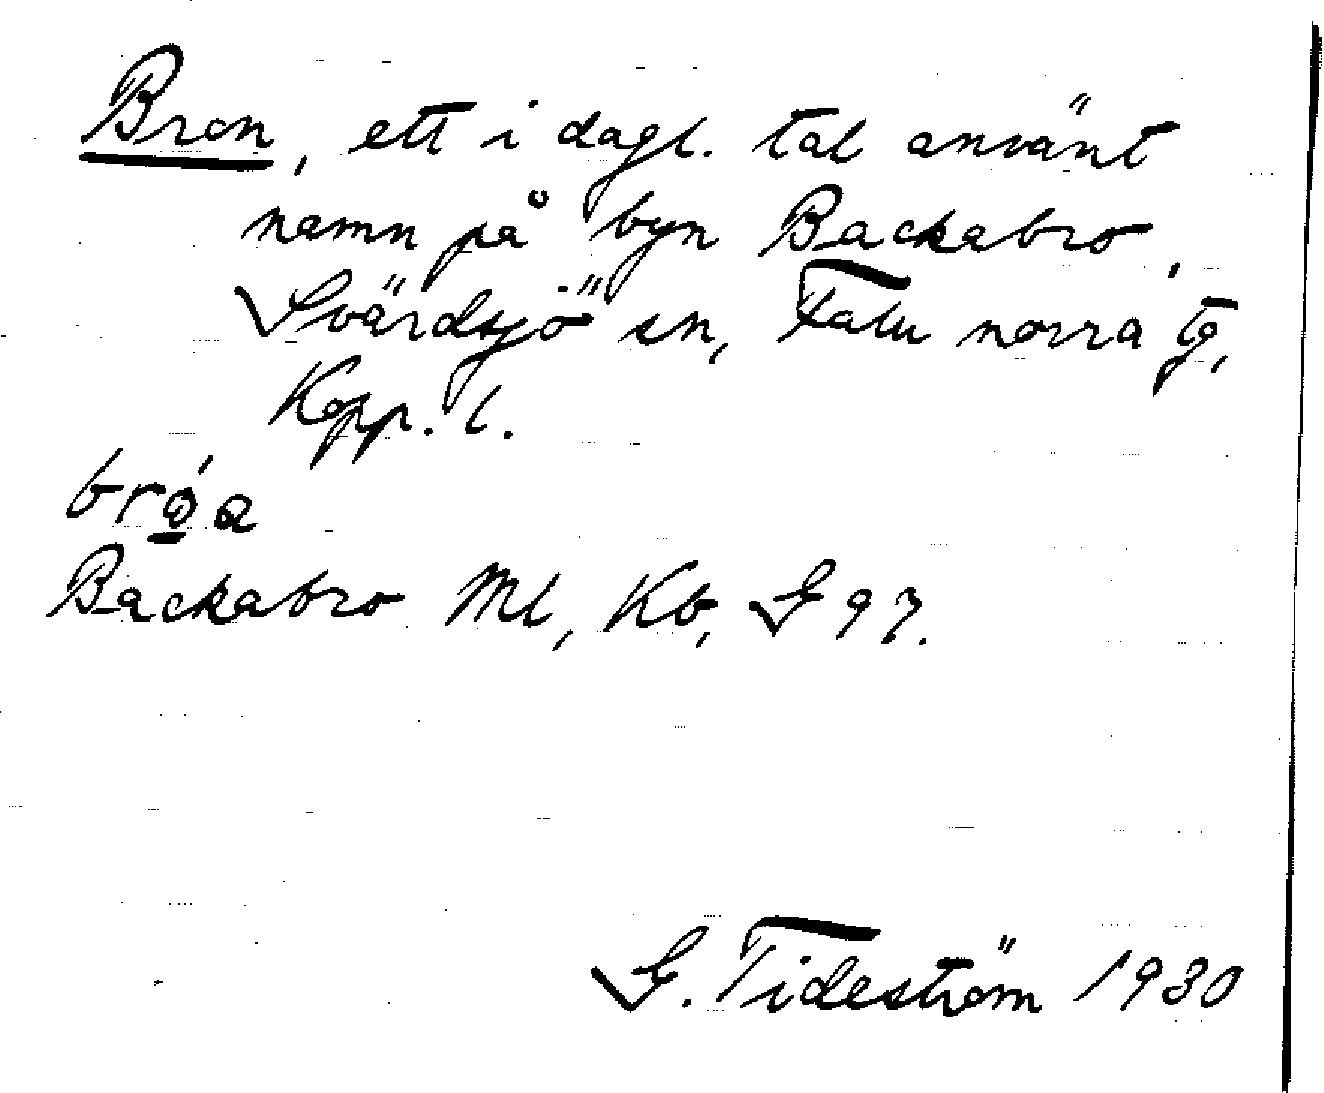 Bron, ett i dagl. tal använt
namn på byn Backabro,
Svärdsjö sn, Falu norra tg,
Kopp. l.
brǿ̱a
Backabro Ml, Kb, G 97.
G. Tideström 1930